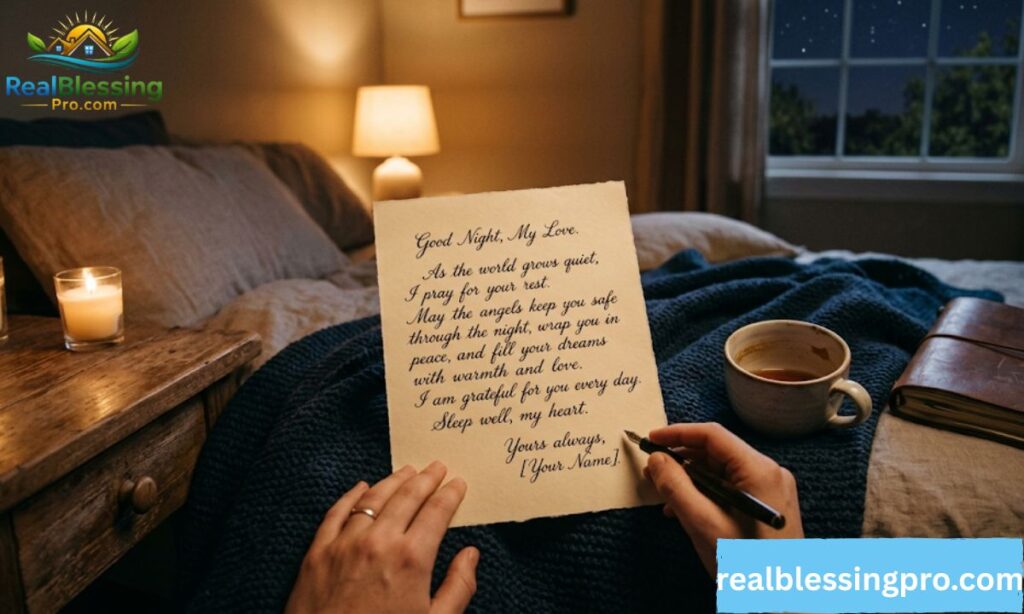 RealBlessing
Pro.com
Good Night, My Love.
As the world grows quiet,
I pray for your rest.
May the angels keep you safe
through the night, wrap you in
peace, and fill your dreams
with warmth and love.
I am grateful for you every day.
Sleep well, my heart.
Yours always,
[Your Name].
realblessingpro.com